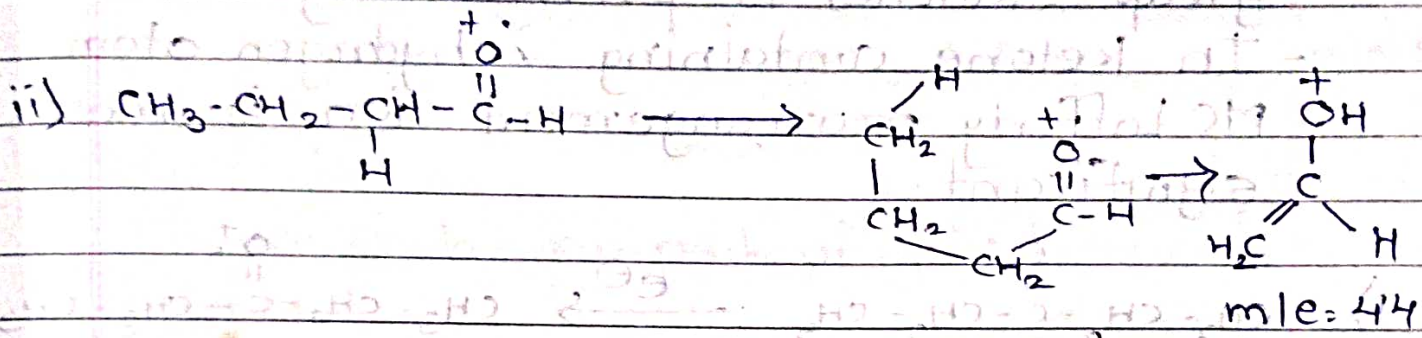 +•
O
||
ii) CH3-CH2-CH-C-H → CH2-H
|
H
CH2
CH2
+•
O
||
C-H
→
+
OH
|
C
H2C
H
m/e = 44